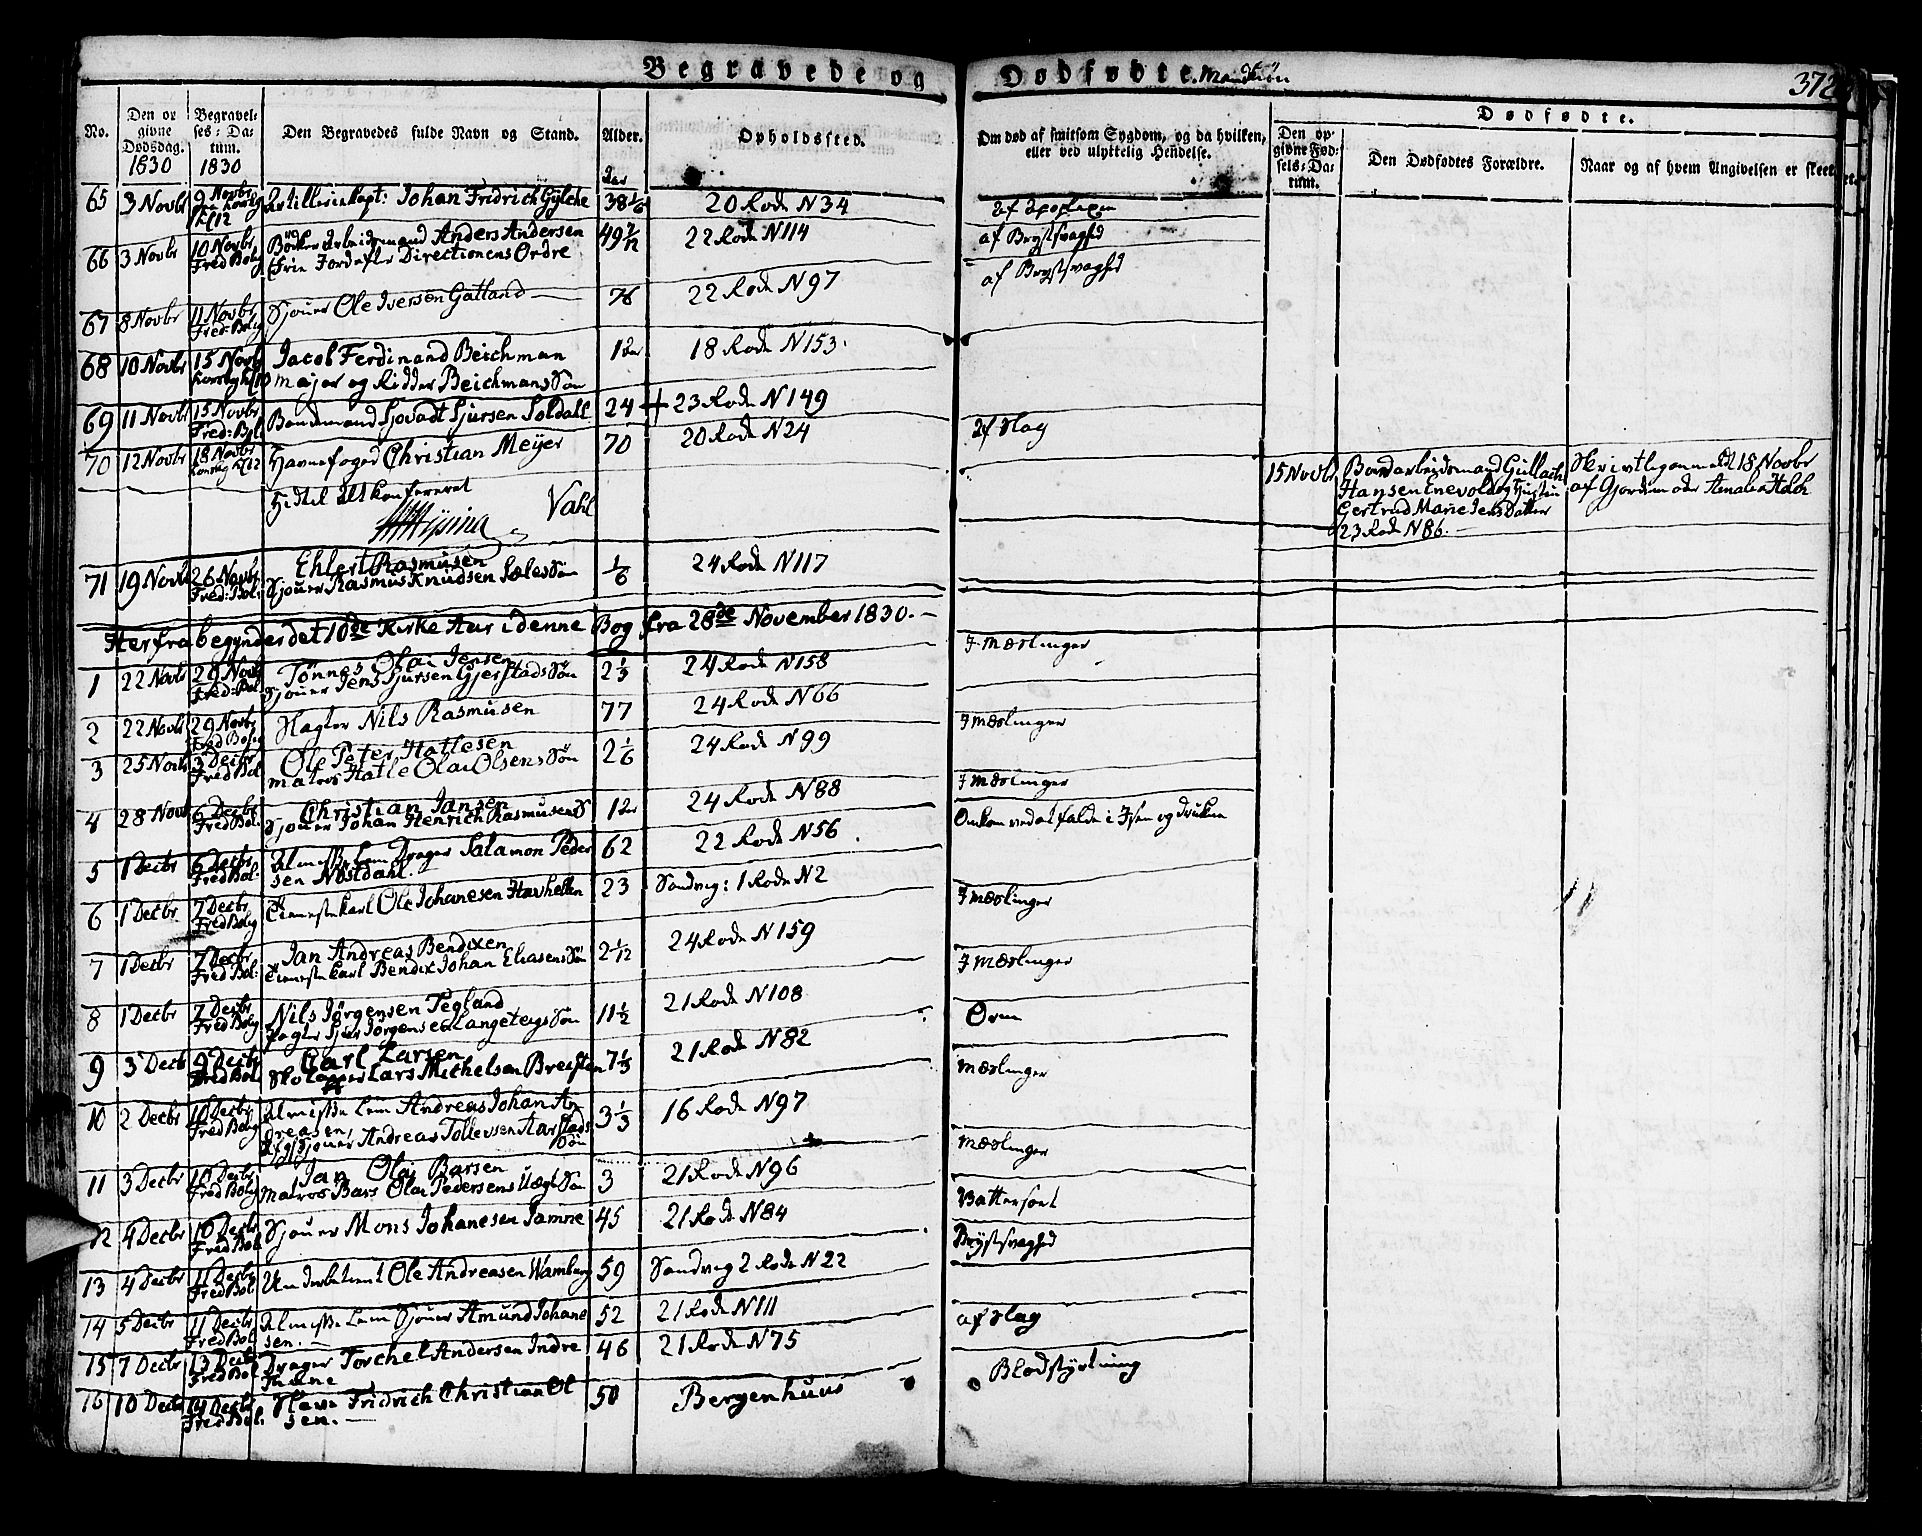 Begravede og Dødfødte. Mandkiøn
372
No.
Den opgivne Dødsdag. 1830
Begravelses-Datum. 1830
Den Begravedes fulde Navn og Stand.
Alder.
Opholdssted.
Om død af smitsom Sygdom, og da hvilken, eller ved ulyttelig Hendelse.
Dødfødte.
Den opgivne Fødsels-Datum.
Den Dødfødtes Forældre.
Naar og af hvem Angivelsen er skeet
65 3 Novbr 9 Novbr Kl 12 Artillericapt: Johan Fridrich Gylche 38 1/6 20 Rode N 34 af Apoplexn
66 3 Novbr 10 Novbr Fred Bolg Bødker Arbeidsmand Anders Andersen 49 22 Rode N 114 af Brystsvaghed
frie Jord efter Directionens Ordre
af Brystsvaghed
67 8 Novbr 11 Novbr Fred: Bolg Sjouer Ole Iversen Gatland 76 22 Rode N 97
68 10 Novbr 15 Novbr Jacob Ferdinand Beichman 1 Aar 18 Rode N 153.
major og Ridder Beichmans Søn
69 11 Novbr 15 Novbr Fred: Bol Bondemand Sjovadt Sjursen Soldall 24 23 Rode N 149
70 12 Novbr 18 Novbr Kl 12 Havnefoged Christian Meÿer 70 20 Rode N 24 af Slag
Hidtil Alt konfereret
Vahl
15 Novbr Bordarbeidsmand Gullach Skrivtlig anmeldt 18 Novbr
Hansen Enevold og Hustru af Gjordem oder Amalia Holch
Gertrud Marie Jens Datter
23 Rode N 86.
71 19 Novbr 26 Novbr Fred: Bol: Ehlert Rasmusen 1/6 24 Rode N 117
Sjouer Rasmus Knudsen Sæles Søn
Herfra begynder det 10de Kirke Aar i denne Bog fra 28de November 1830.
1 22 Novbr 29 Novbr Fred: Bol Tønnes Olai Jensen 2 1/3 24 Rode N 158 I mæslinger
Sjouer Jens Sjursen Gjerstads Søn
2 22 Novbr 29 Novbr Fred Bolg Vagter Nils Rasmusen 77 24 Rode N 66
3 25 Novbr 3 Decbr Fred Bol Ole Peter Hatlesen 2 1/6 24 Rode N 99 I mæslinger
matros Hatle Olai Olsens Søn
4 28 Novbr 6 Decbr Fred Bol. Christian Jansen 1 Aar 24 Rode N 88 I mæslinger
Sjouer Johan Henrich Rasmusens S
5 1 Decbr 6 Decbr Fred Bol. Almisse Lem Drager Salamon Peder 62 22 Rode N 56 Omkom ved at falde i Søen og drukne
sen Nøstdahl.
6 1 Decbr 7 Decbr Fred Bolg Tienestekarl Ole Johanesen Havhellen 23 Sandvig: 1 Rode N 2
7 1 Decbr 7 Decbr Fred Bol: Jan Andreas Bendixen 2 1/12 24 Rode N 159 I mæslinger
Tienestekarl Bendix Johan Eliasens Søn
8 1 Decbr 7 Decbr Fred Bolg Nils Jörgensen Tegland 11 1/2 21 Rode N 108 I mæslinger
Vagter Sjur Jørgensen Langeteigs Søn
Orm
9 3 Decbr 9 Decbr Fred Bol Carl Larsen 7 1/3 21 Rode N 82 mæslinger
Lars Michelsen Breisten
10 2 Decbr 10 Decbr Fred Bolg Almisse Lem Andreas Johan An 3 1/3 16 Rode N 97
dreasen,
Afg. Sjouer Andreas Tollevsen Aarstads Søn
mæslinger
11 3 Decbr 10 Decbr Fred Bolg Jan Olai Barsen 3 21 Rode N 96
Matros Bars Olai Pedersens Søn
Vattersoet
12 4 Decbr 10 Decbr Fred Bol Sjouer Mons Johanesen Jamne 45 21 Rode N 84 Brystsvaghed
13 4 Decbr 11 Decbr Fred Bol. Underbetient Ole Andreasen Wamberg 59 Sandvig 2 Rode N 22
14 5 Decbr 11 Decbr Fred Bol Almisse Lem Sjouer Amund Johane 52 21 Rode N 111 af Slag
sen.
15 7 Decbr 13 Decbr Fred Bol Drager Torchel Andersen Indre 46 21 Rode N 75
16 10 Decbr 14 Decbr Fred Bol. Slave Fridrich Christian Ol 50 Bergenhuus Blodstyrtning
sen.